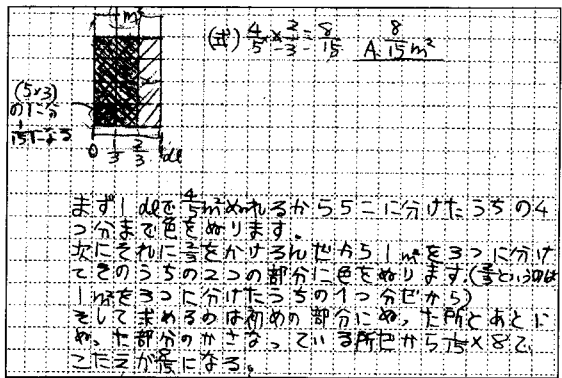 1m²
(式) 4/5×2/3=8/15 A. 8/15 m²
(5×3)
の1こ分
1/15になる
0 1/3 2/3 1dl
まず1dlで4/5m²ぬれるから5こに分けたうちの4
つ分まで色をぬります。
次にそれに2/3をかけるんだから1m²を3つに分け
てそのうちの2つの部分に色をぬります。(2/3というのは
1m²を3つに分けたうちの1つ分だから)
そして求めるのは初めの部分にぬった所とあとに
ぬった部分のかさなっている所だから1/15×8で
こたえが8/15になる。